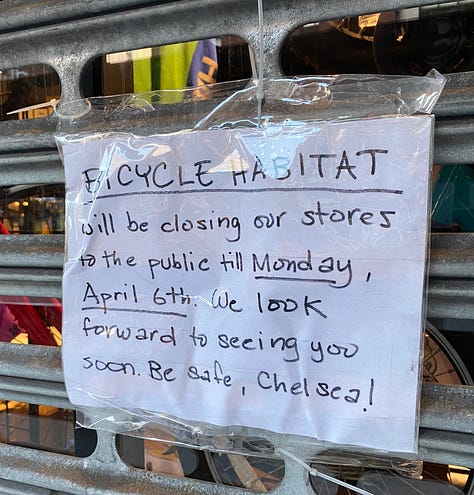 BICYCLE HABITAT
will be closing our stores
to the public till Monday,
April 6th. We look
forward to seeing you
soon. Be safe, Chelsea!